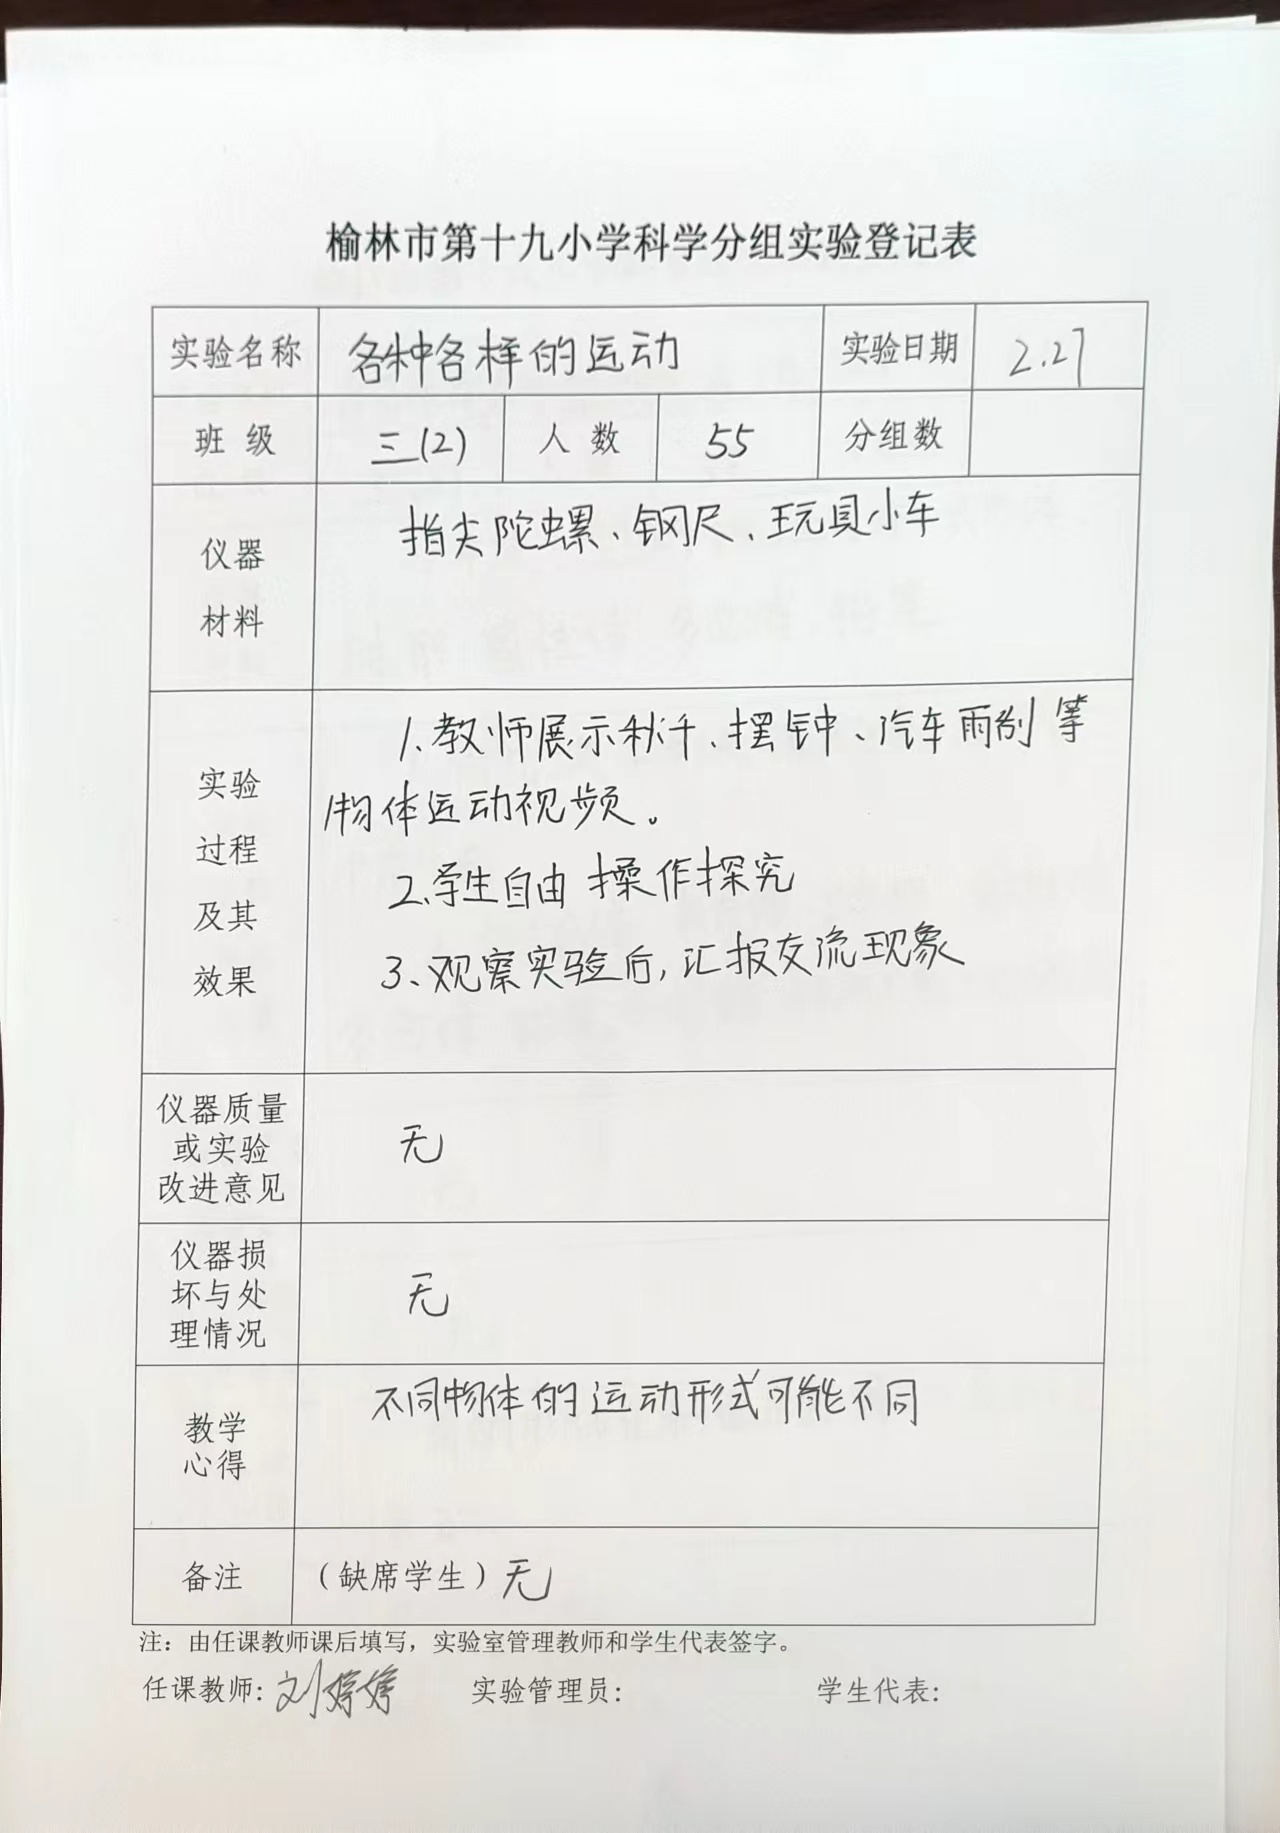 榆林市第十九小学科学分组实验登记表
实验名称 各种各样的运动 实验日期 2.27
班 级 三(2) 人 数 55 分组数
仪器
材料
指尖陀螺、钢尺、玩具小车
实验
过程
及其
效果
1.教师展示秋千、摆钟、汽车雨刮等
物体运动视频。
2.学生自由操作探究
3、观察实验后,汇报交流现象
仪器质量
或实验
改进意见
无
仪器损
坏与处
理情况
无
教学
心得
不同物体的运动形式可能不同
备注 (缺席学生)无
注：由任课教师课后填写，实验室管理教师和学生代表签字。
任课教师: 刘婷婷 实验管理员: 学生代表: